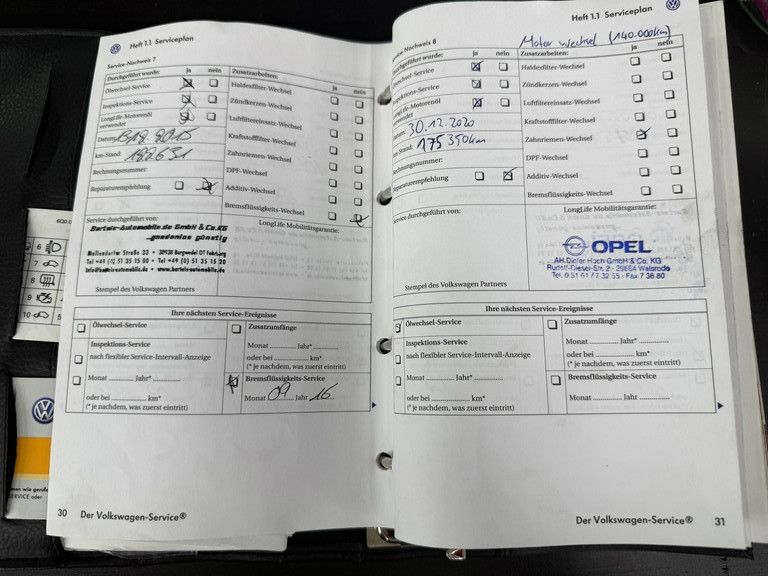 Heft 1.1 Serviceplan
Service-Nachweis 7
Durchgeführt wurde: ja nein
Ölwechsel-Service
Inspektions-Service
LongLife-Motorenöl
verwendet
Datum:
km-Stand:
Rechnungsnummer:
Reparaturempfehlung
Zusatzarbeiten: ja nein
Haldexfilter-Wechsel
Zündkerzen-Wechsel
Luftfiltereinsatz-Wechsel
Kraftstofffilter-Wechsel
Zahnriemen-Wechsel
DPF-Wechsel
Additiv-Wechsel
Bremsflüssigkeits-Wechsel
Service durchgeführt von:
LongLife Mobilitätsgarantie:
Bartels-Automobile.de GmbH & Co.KG
...gnadenlos günstig
Mellendorfer Straße 33 • 30938 Burgwedel OT Fuhrberg
Tel +49 (0) 51 35 15 00 • Tel +49 (0) 51 35 15 20
info@bartels-automobile.de • www.bartels-automobile.de
Stempel des Volkswagen Partners
Ihre nächsten Service-Ereignisse
Ölwechsel-Service
Inspektions-Service
nach flexibler Service-Intervall-Anzeige
Monat ............ Jahr* ............
oder bei ............ km*
(* je nachdem, was zuerst eintritt)
Zusatzumfänge
Monat ............ Jahr* ............
oder bei ............ km*
(* je nachdem, was zuerst eintritt)
Bremsflüssigkeits-Service
Monat 09 Jahr 16
30 Der Volkswagen-Service®
Heft 1.1 Serviceplan
Motor Wechsel (140.000km)
Service-Nachweis 8
Durchgeführt wurde: ja nein
Ölwechsel-Service
Inspektions-Service
LongLife-Motorenöl
verwendet
Datum: 30.12.2020
km-Stand: 175350km
Rechnungsnummer:
Reparaturempfehlung
Zusatzarbeiten: ja nein
Haldexfilter-Wechsel
Zündkerzen-Wechsel
Luftfiltereinsatz-Wechsel
Kraftstofffilter-Wechsel
Zahnriemen-Wechsel
DPF-Wechsel
Additiv-Wechsel
Bremsflüssigkeits-Wechsel
Service durchgeführt von:
LongLife Mobilitätsgarantie:
OPEL
AH Dieter Hoch GmbH & Co. KG
Rudolf-Diesel-Str. 2 - 29664 Walsrode
Stempel des Volkswagen Partners
Ihre nächsten Service-Ereignisse
Ölwechsel-Service
Inspektions-Service
nach flexibler Service-Intervall-Anzeige
Monat ............ Jahr* ............
oder bei ............ km*
(* je nachdem, was zuerst eintritt)
Zusatzumfänge
Monat ............ Jahr* ............
oder bei ............ km*
(* je nachdem, was zuerst eintritt)
Bremsflüssigkeits-Service
Monat ............ Jahr ............
Der Volkswagen-Service® 31
6
7
8
9
10